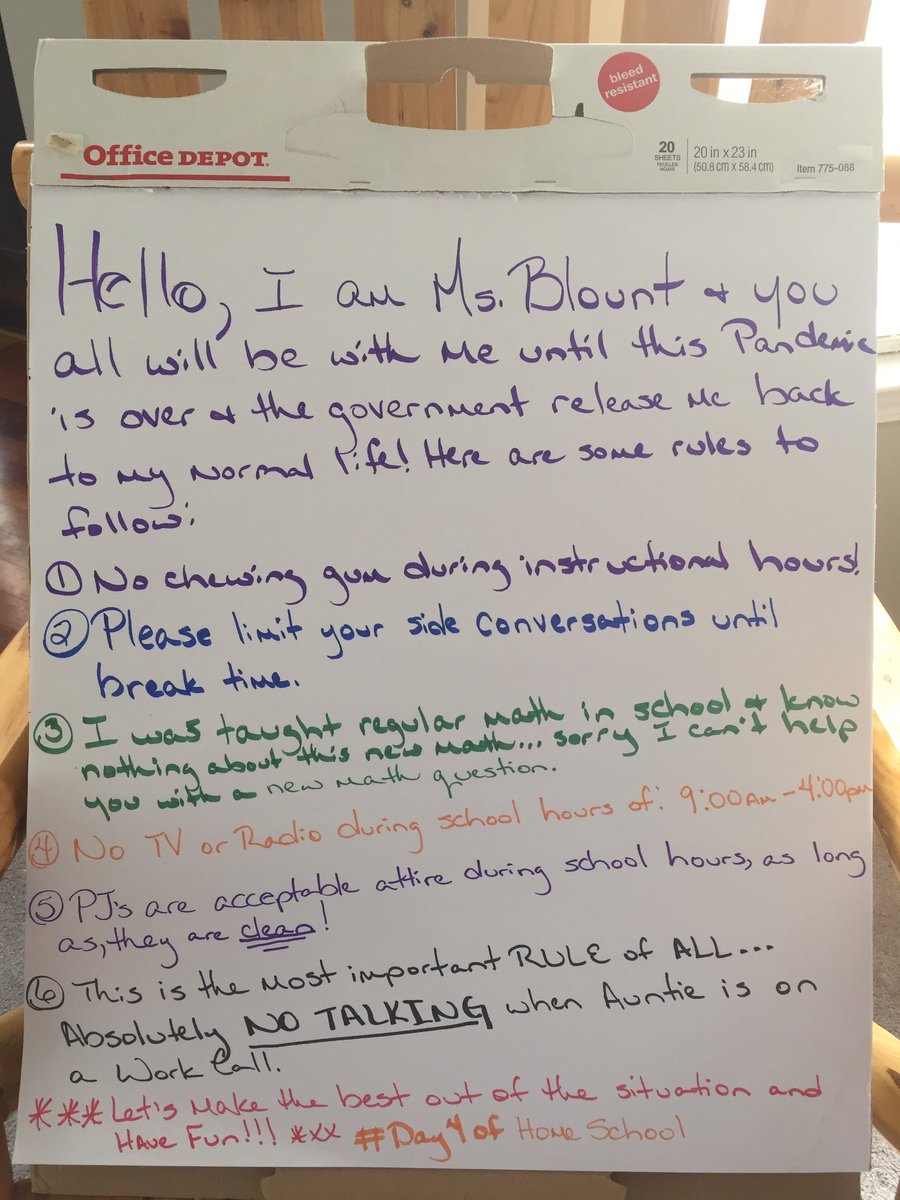 bleed
resistant
Office DEPOT.
20
SHEETS
FEUILLES
HOJAS
20 in x 23 in
(50.8 cm x 58.4 cm)
Item 775-088
Hello, I am Ms. Blount & you
all will be with me until this Pandemic
is over & the government release me back
to my normal life! Here are some rules to
follow:
① No chewing gum during instructional hours!
② Please limit your side conversations until
break time.
③ I was taught regular math in school & know
nothing about this new math... sorry I can't help
you with a new math question.
④ No TV or Radio during school hours of: 9:00AM - 4:00pm
⑤ PJ's are acceptable attire during school hours, as long
as, they are clean!
⑥ This is the most important RULE of ALL...
Absolutely NO TALKING when Auntie is on
a Work Call.
***Let's make the best out of the situation and
Have Fun!!! *xx #Day 4 of Home School